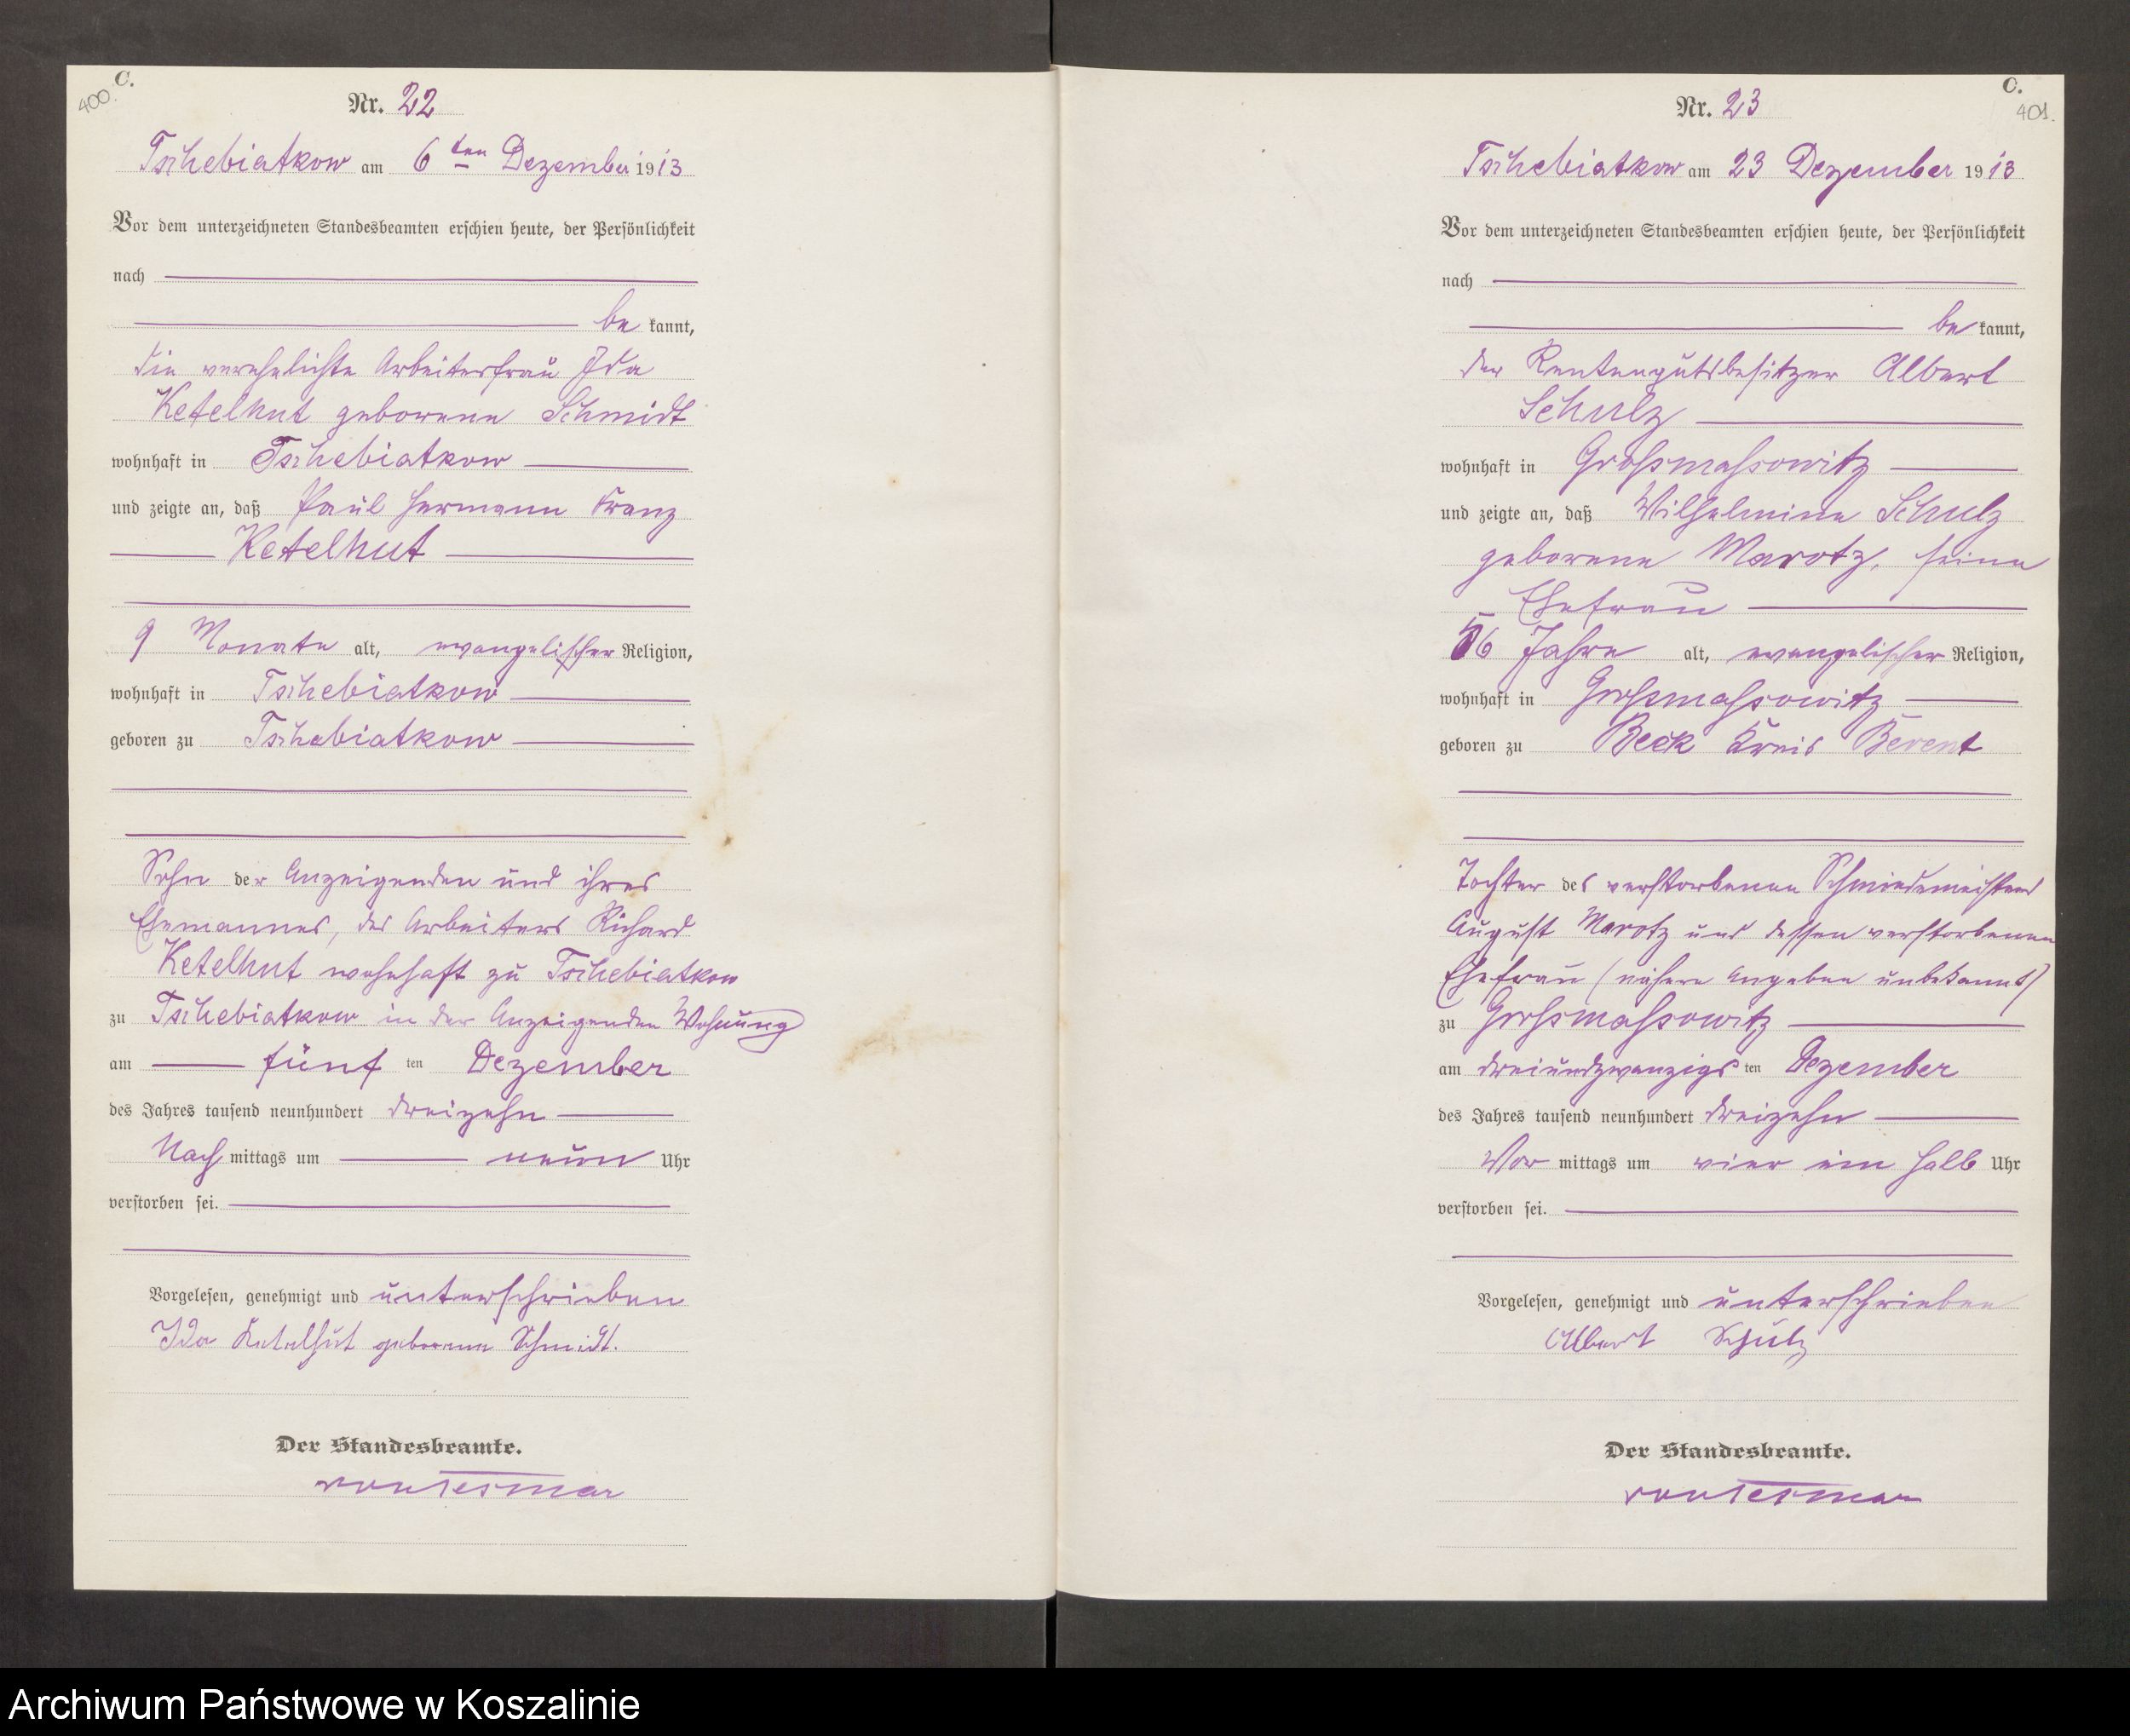 C.
400.
Nr. 22
Tschebiatkow am 6 ten Dezember 1913
Vor dem unterzeichneten Standesbeamten erschien heute, der Persönlichkeit
nach
be kannt,
die verehelichte Arbeiterfrau Ida
Ketelhut geborene Schmidt
wohnhaft in Tschebiatkow
und zeigte an, daß Paul Hermann Franz
Ketelhut
9 Monate alt, evangelischer Religion,
wohnhaft in Tschebiatkow
geboren zu Tschebiatkow
Sohn der Anzeigenden und ihres
Ehemannes, des Arbeiters Richard
Ketelhut wohnhaft zu Tschebiatkow
zu Tschebiatkow in der Anzeigenden Wohnung
am fünf ten Dezember
des Jahres tausend neunhundert dreizehn
Nach mittags um neun Uhr
verstorben sei.
Vorgelesen, genehmigt und unterschrieben
Ida Ketelhut geborene Schmidt.
Der Standesbeamte.
von Tesmar
C.
401.
Nr. 23
Tschebiatkow am 23 Dezember 1913
Vor dem unterzeichneten Standesbeamten erschien heute, der Persönlichkeit
nach
be kannt,
der Rentengutsbesitzer Albert
Schulz
wohnhaft in Großmassowitz
und zeigte an, daß Wilhelmine Schulz
geborene Marotz, seine
Ehefrau
56 Jahre alt, evangelischer Religion,
wohnhaft in Großmassowitz
geboren zu Beek Kreis Berent
Tochter des verstorbenen Schmiedemeisters
August Marotz und dessen verstorbenen
Ehefrau (nähere Angaben unbekannt)
zu Großmassowitz
am dreiundzwanzigs ten Dezember
des Jahres tausend neunhundert dreizehn
Vor mittags um vier ein halb Uhr
verstorben sei.
Vorgelesen, genehmigt und unterschrieben
Albert Schulz
Der Standesbeamte.
von Tesmar
Archiwum Państwowe w Koszalinie